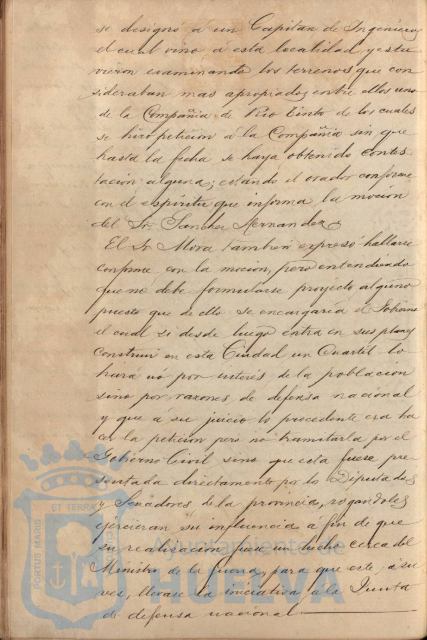 se designó a un Capitan de Ingenieros
el cual vino a esta localidad y estu
vieron examinando los terrenos que con
sideraban mas apropiados, entre ellos uno
de la Compañia de Rio Tinto de los cuales
se hizo peticion a la Compañia sin que
hasta la fecha se haya obtenido contes
tacion alguna; estando el orador conforme
con el espiritu que informa la mocion
del Sr. Sanchez Hernandez.
El Sr Mora tambien expresó hallarse
conforme con la mocion, pero entendiendo
que no debe formularse proyecto alguno
puesto que de ello se encargaria el Gobierno
el cual si desde luego entra en sus planes
construir en esta Ciudad un Cuartel lo
hara nó por interés de la poblacion
sino por razones de defensa nacional
y que á su juicio lo procedente era ha
cer la peticion pero no tramitarla por el
Gobierno Civil sino que esta fuese pre
sentada directamente por los Diputados
y Senadores de la provincia, rogandoles
ejercieran su influencia a fin de que
su realizacion fuese un hecho cerca del
Ministro de la Guerra, para que este, a su
vez, llevase la iniciativa a la Junta
de defensa nacional
PORTUS MARIS ET TERRAE
Ayuntamiento de
HUELVA